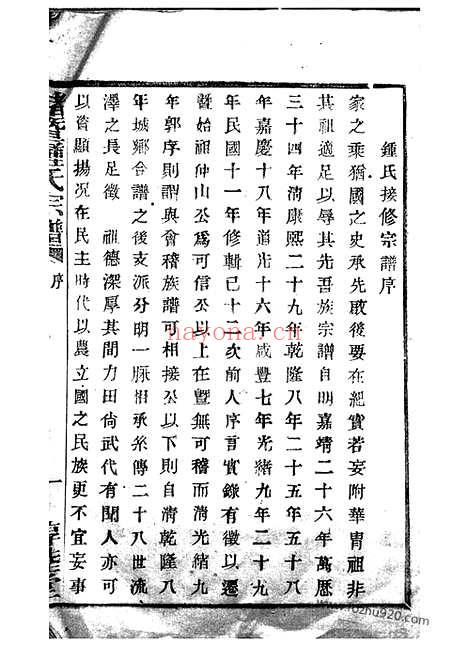 鍾氏接修宗譜序
家之乘猶國之史承先啟後要在紀實若妄附華冑祖非
其祖適足以辱其先吾族宗譜自明嘉靖二十六年萬曆
三十四年淸康熙二十九年乾隆八年二十五年五十八
年嘉慶十八年道光十六年咸豐七年光緒九年二十九
年民國十一年修輯已十二次前人序言實錄有徵以遷
暨始祖仲山公爲可信公以上在暨無可稽而淸光緒九
年郭序則謂與會稽族譜可相接公以下則自淸乾隆八
年城鄉合譜之後支派分明一脉相承条傳二十八世流
澤之長足徵 祖德深厚其間力田尙武代有聞人亦可
以資顯揚况在民主時代以農立國之民族更不宜妄事
氏宗譜
序
一
nayona.cn
www.fozhu920.com